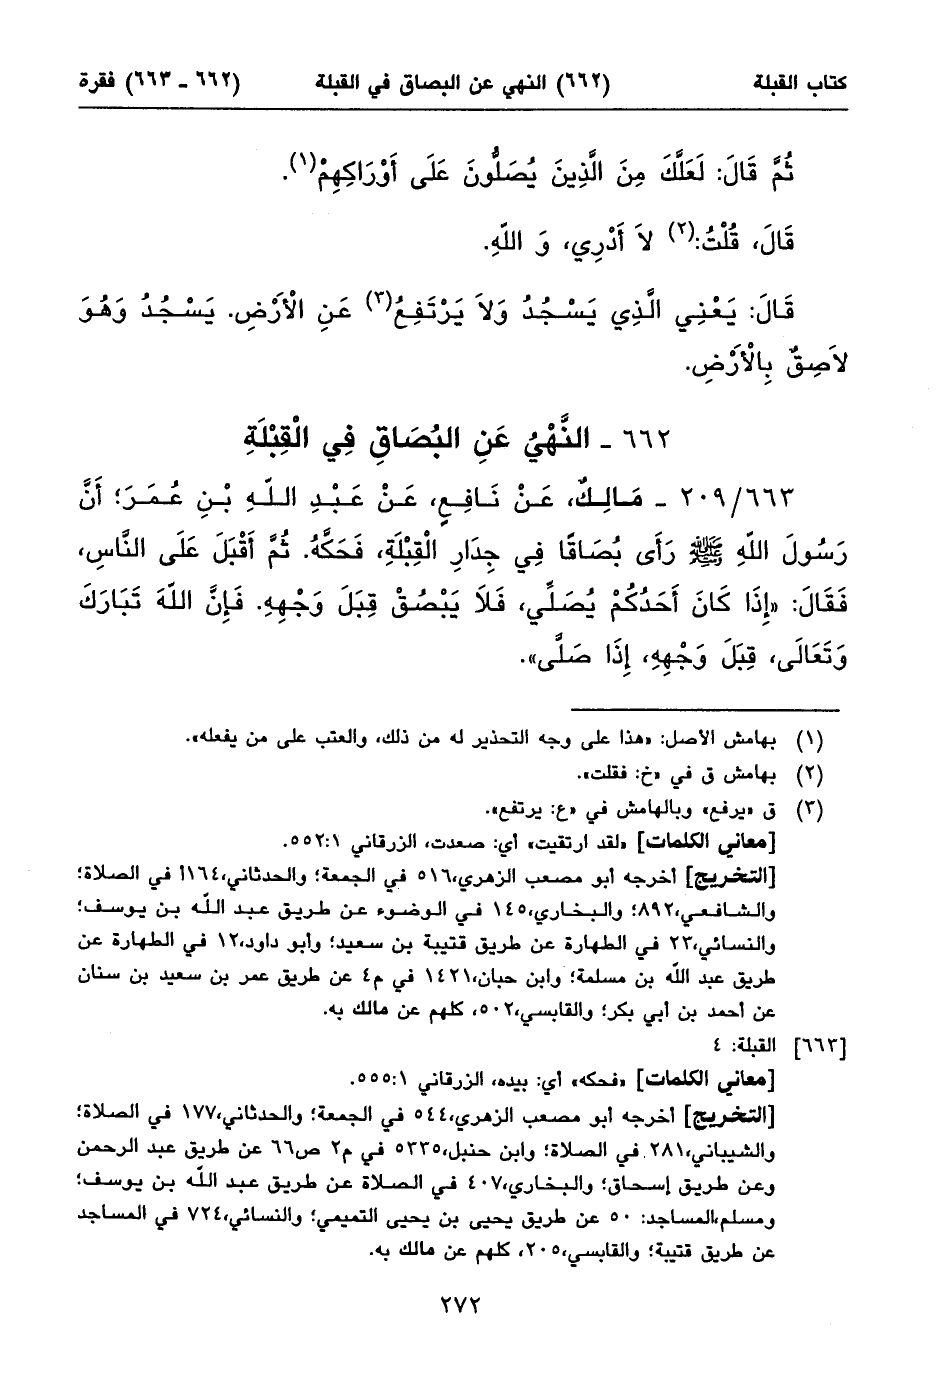 كتاب القبلة (٦٦٢) النهي عن البصاق في القبلة (٦٦٢ - ٦٦٣) فقرة
ثُمَّ قَالَ: لَعَلَّكَ مِنَ الَّذِينَ يُصَلُّونَ عَلَى أَوْرَاكِهِمْ(١).
قَالَ، قُلْتُ:(٢) لاَ أَدْرِي، وَ اللَّهِ.
قَالَ: يَعْنِي الَّذِي يَسْجُدُ وَلاَ يَرْتَفِعُ(٣) عَنِ الْأَرْضِ. يَسْجُدُ وَهُوَ
لاَصِقٌ بِالْأَرْضِ.
٦٦٢ - النَّهْيُ عَنِ البُصَاقِ فِي الْقِبْلَةِ
٢٠٩/٦٦٣ - مَالِكٌ، عَنْ نَافِعٍ، عَنْ عَبْدِ اللَّهِ بْنِ عُمَرَ؛ أَنَّ
رَسُولَ اللَّهِ ﷺ رَأَى بُصَاقًا فِي جِدَارِ الْقِبْلَةِ، فَحَكَّهُ. ثُمَّ أَقْبَلَ عَلَى النَّاسِ،
فَقَالَ: «إِذَا كَانَ أَحَدُكُمْ يُصَلِّي، فَلاَ يَبْصُقْ قِبَلَ وَجْهِهِ. فَإِنَّ اللَّهَ تَبَارَكَ
وَتَعَالَى، قِبَلَ وَجْهِهِ، إِذَا صَلَّى».
(١) بهامش الأصل: «هذا على وجه التحذير له من ذلك، والعتب على من يفعله».
(٢) بهامش ق في «خ: فقلت».
(٣) ق «يرفع» وبالهامش في «ع: يرتفع».
[معاني الكلمات] «لقد ارتقيت» أي: صعدت، الزرقاني ١:٥٥٢.
[التخريج] أخرجه أبو مصعب الزهري،٥١٦ في الجمعة؛ والحدثاني،١٦٤أ في الصلاة؛
والشافعي،٨٩٢؛ والبخاري،١٤٥ في الوضوء عن طريق عبد اللّه بن يوسف؛
والنسائي،٢٣ في الطهارة عن طريق قتيبة بن سعيد؛ وأبو داود،١٢ في الطهارة عن
طريق عبد اللّه بن مسلمة؛ وابن حبان،١٤٢١ في م٤ عن طريق عمر بن سعيد بن سنان
عن أحمد بن أبي بكر؛ والقابسي،٥٠٢، كلهم عن مالك به.
[٦٦٣] القبلة: ٤
[معاني الكلمات] «فحكه» أي: بيده، الزرقاني ١:٥٥٥.
[التخريج] أخرجه أبو مصعب الزهري،٥٤٤ في الجمعة؛ والحدثاني،١٧٧ في الصلاة؛
والشيباني،٢٨١ في الصلاة؛ وابن حنبل،٥٣٣٥ في م٢ ص٦٦ عن طريق عبد الرحمن
وعن طريق إسحاق؛ والبخاري،٤٠٧ في الصلاة عن طريق عبد اللّه بن يوسف؛
ومسلم،المساجد: ٥٠ عن طريق يحيى بن يحيى التميمي؛ والنسائي،٧٢٤ في المساجد
عن طريق قتيبة؛ والقابسي،٢٠٥، كلهم عن مالك به.
٢٧٢